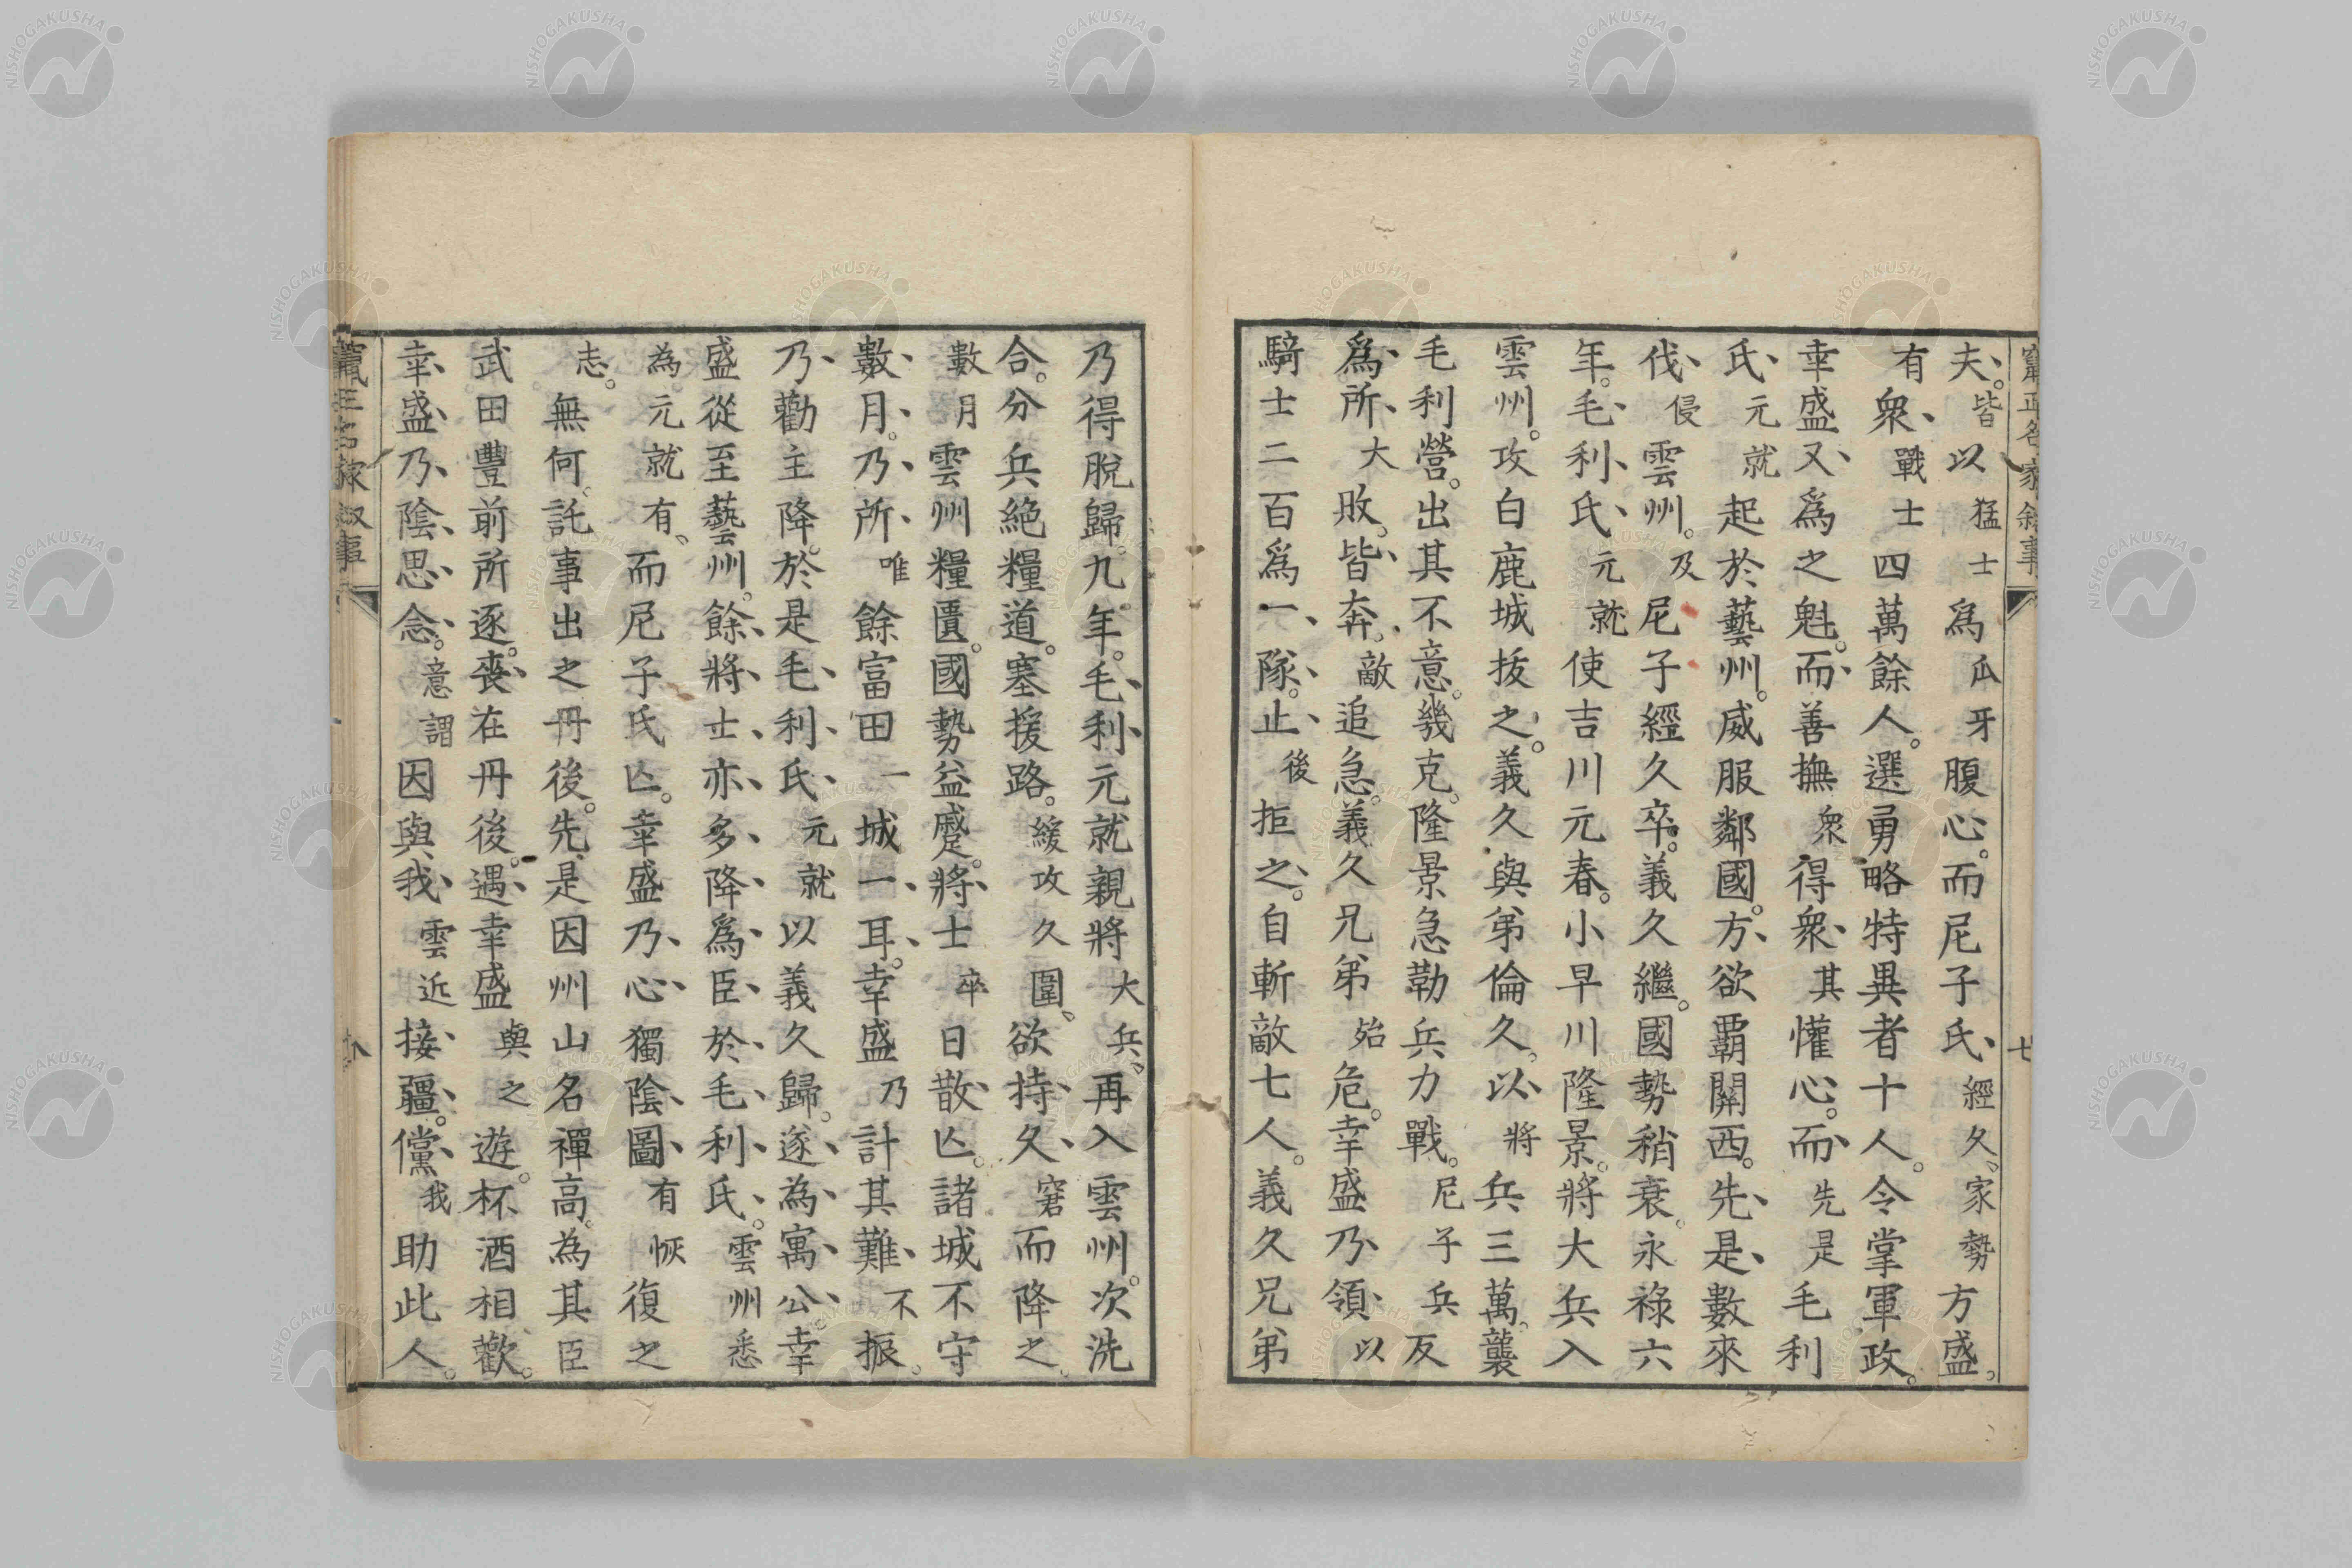 竄正名家叙事
七
夫。皆以猛士爲瓜牙腹心。而尼子氏經久、家勢方盛。
有衆戰士四萬餘人。選勇略特異者十人。令掌軍政。
幸盛又爲之魁。而善撫衆得衆其懽心。而先是毛利
氏元就起於藝州。威服鄰國。方欲覇關西。先是數來
伐侵雲州。及尼子經久卒。義久繼。國勢稍衰。永祿六
年。毛利氏元就使吉川元春。小早川隆景。將大兵入
雲州。攻白鹿城拔之。義久與弟倫久。以將兵三萬。襲
毛利營。出其不意。幾克。隆景急勒兵力戰。尼子兵反
爲所大敗。皆奔。敵追急。義久兄弟殆危。幸盛乃領以
騎士二百爲一隊。止後拒之。自斬敵七人。義久兄弟
乃得脫歸。九年。毛利元就親將大兵、再入雲州。次洗
合。分兵絶糧道。塞援路。緩攻久圍、欲持久窘而降之。
數月雲州糧匱。國勢益蹙。將士卒日散亾。諸城不守
數月。乃所唯餘富田一城一耳。幸盛乃計其難不振。
乃勸主降。於是毛利氏元就以義久歸。遂為寓公幸
盛從至藝州。餘將士亦多降爲臣於毛利氏。雲州悉
為元就有、而尼子氏亾。幸盛乃心獨陰圖有恢復之
志。無何。託事出之丹後。先是因州山名禪高。為其臣
武田豐前所逐。喪在丹後。遇幸盛與之遊。杯酒相歡。
幸盛乃陰思念。意謂因與我雲近接疆。儻我助此人。
竄正名家叙事
八